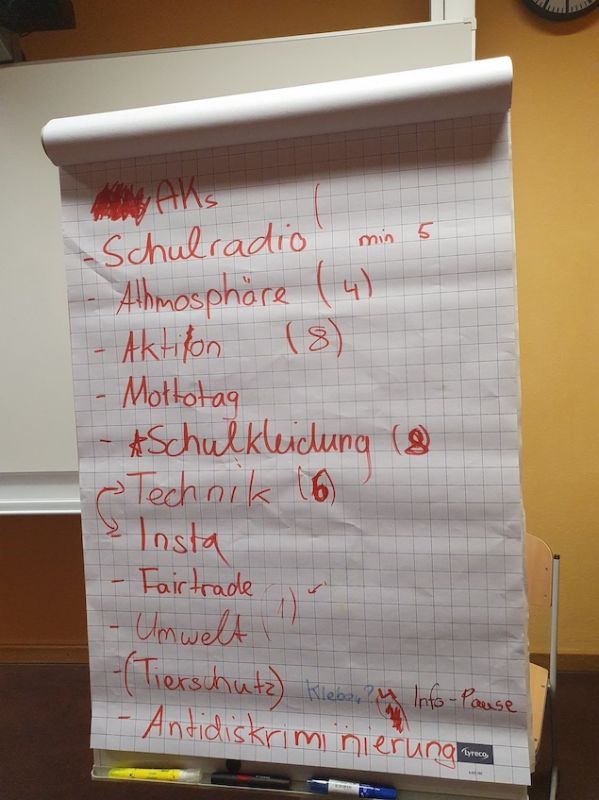 AKs (
- Schulradio min 5
- Athmosphäre (4)
- Aktion (8)
- Mottotag
- Schulkleidung (8
Technik (6)
- Insta
- Fairtrade
- Umwelt (1)
-(Tierschutz) Info-Pause
- Antidiskriminierung
Lyreco